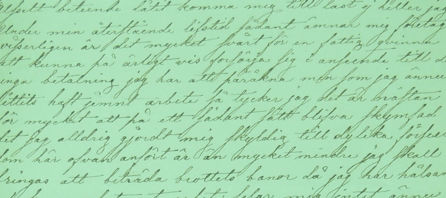 beteende låtit komma mig till last, ej heller jag
under min återstående lifstid sådant ämnar mig företaga
visserligen är det mycket svårt för en fattig qvinna
att kunna på ärligt vis försörja sig i anseende till den
ringa betalning jag har att påräkna men som jag ännu
alltid haft jemnt arbete så tycker jag det är kräftan
för mycket att på ett sådant sätt blifva skymfad
det jag alldrig gjordt mig skyldig till dylika förseelser
som här ofvan anfört är än mycket mindre jag skall
bringas att beträda brottets banor då jag har hälsan